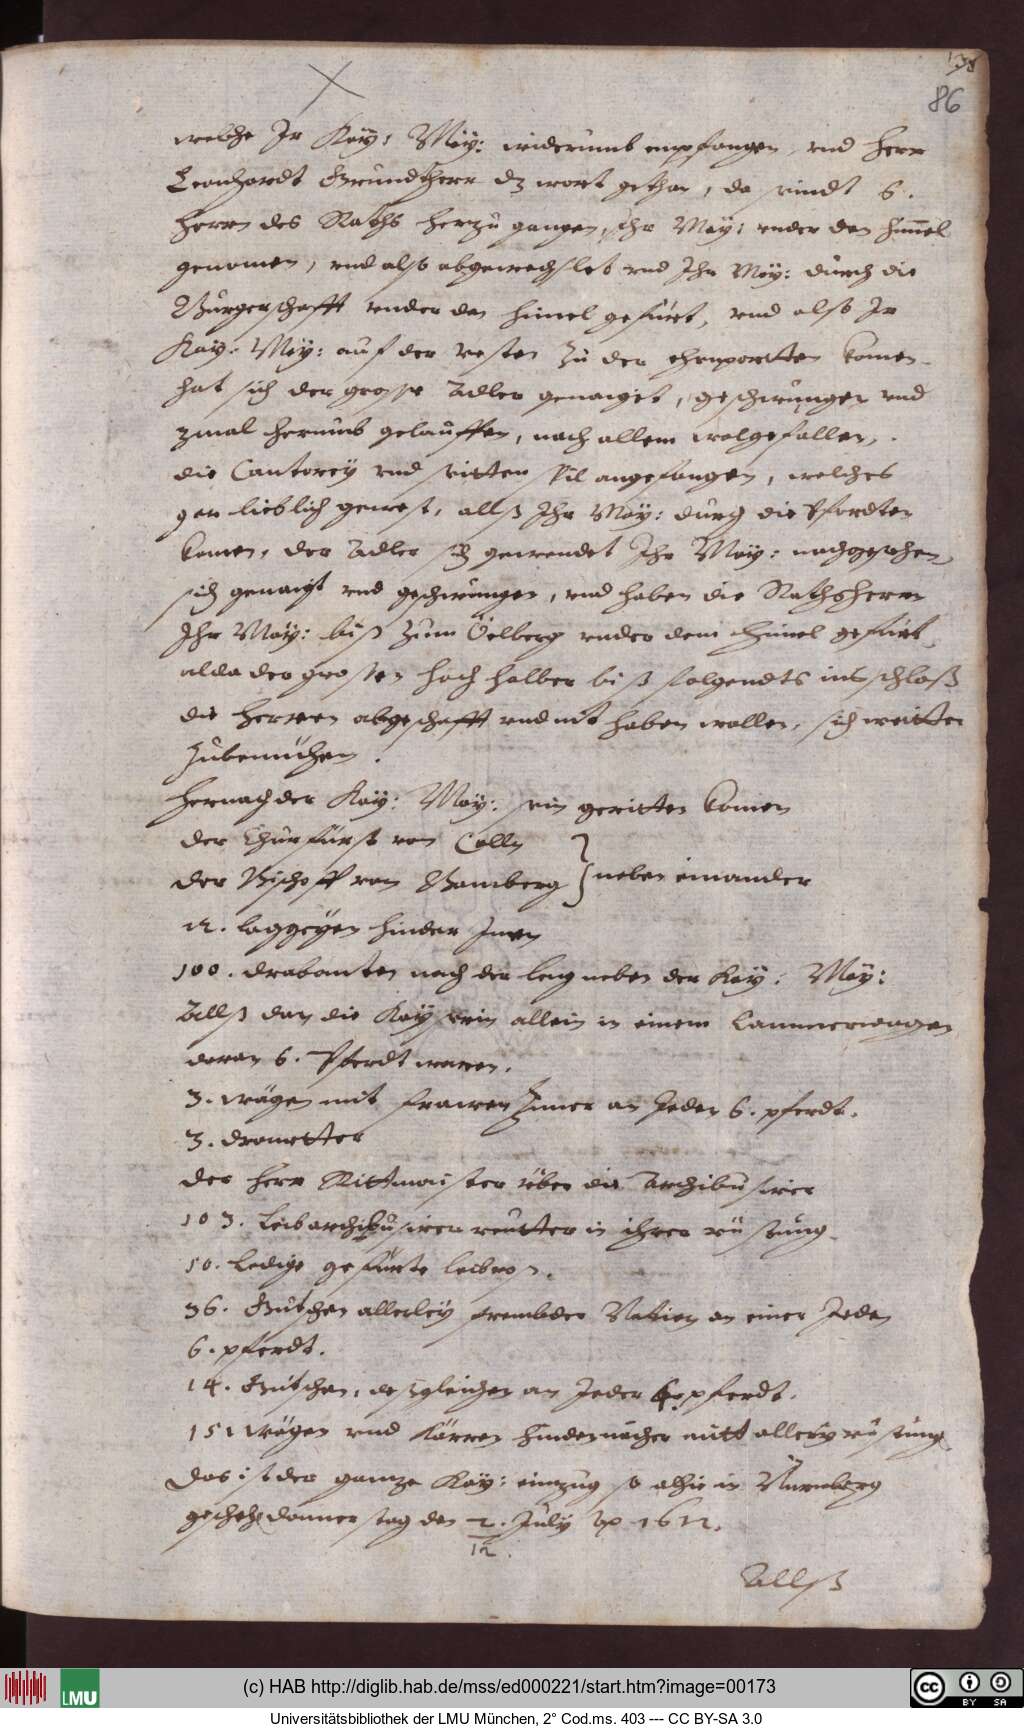 86
welche Ir Kay: May: widerumb empfangen, vnd Herr
Leonhardt Grundtherr dz wort gethan, da sindt 6.
herrn des Raths herzu gangen, Ihr May: vnder den himel
genomen, vnd also abgewechslet vnd Ihr May: durch die
Burgerschafft vnder den himel gefürt, vnd also Ir
Kay: May: auf der vesten zu der ehrnportten komen
hat sich der grosse Adler genaiget, geschwungen vnd
3mal herumb gelauffen, nach allem wolgefallen,
die Cantorey vnd seitten spil angefangen, welches
gar lieblich gewest, allß Ihr May: durch die Pfordten
komen, der Adler sich gewendet Ihr May: nachgesehen,
sich genaigt vnd geschwungen, vnd haben die Rathsherrn
Ihr May: biß zum Öelberg vnder dem himel gefürt,
alda der grossen hoch halber biß folgendts ins schloß
die herren abgeschafft vnd nit haben wollen, sich weitter
zubemühen.
Hernach der Kay: May: sein geritten komen
der Churfürst von Cölln
der Bischoff von Bamberg } neben einander
12. laggeyen hinder Inen
100. drabanten nach der leng neben der Kay: May:
Allß dan die Kayserin allein in einem Cammerwagen
daran 6. Pferdt waren.
3. wägen mit frawen Zimer an Jeden 6. pferdt.
3. drometter
der herr Rittmaister über die Archibusirer
103. Leibarchibusirer reutter in ihrer rüstung.
10. Ledige gefürte leibros.
36. Gutschen allerley frembder Nation an einer Jeden
6. pferdt.
14. Gutschen, deßgleichen an Jeder 6. pferdt.
151 Wägen vnd Kärren hindernacher mitt allerley rüstung
Das ist der gantze Kay: einzug so alhie in Nürmberg
geschehen donnerstag den 2. July Ao 1612.
12.
Allß
(c) HAB http://diglib.hab.de/mss/ed000221/start.htm?image=00173
LMU
cc BY SA
Universitätsbibliothek der LMU München, 2° Cod.ms. 403 --- CC BY-SA 3.0